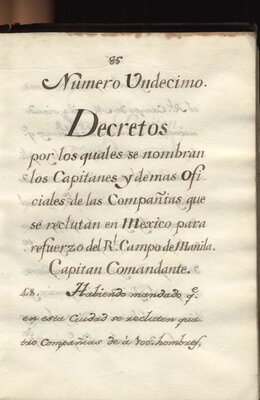 85
Numero Undecimo.
Decretos
por los quales se nombran
los Capitanes y demas ofi
ciales de las Compañias que
se reclutan en Mexico para
refuerzo del Rl. Campo de Manila.
Capitan Comandante.
48. Habiendo mandado qe.
en esta Ciudad se recluten qua
tro Compañias de á 100. hombres,